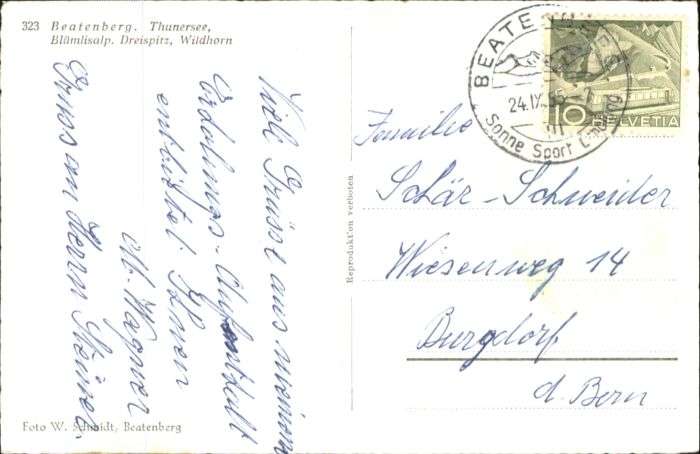 323 Beatenberg. Thunersee,
Blümlisalp. Dreispitz, Wildhorn
Viele Grüsse aus meinem
Erholungs-Aufenthalt
entbietet Ihnen
M. Wagner
Gruss an Herrn
Foto W. Schmidt, Beatenberg
Reproduktion verboten
BEATENBERG
24.IX.55
Sonne Sport
10
HELVETIA
Familie
Schär-Schweider
Wiesenweg 14
Burgdorf
Bern